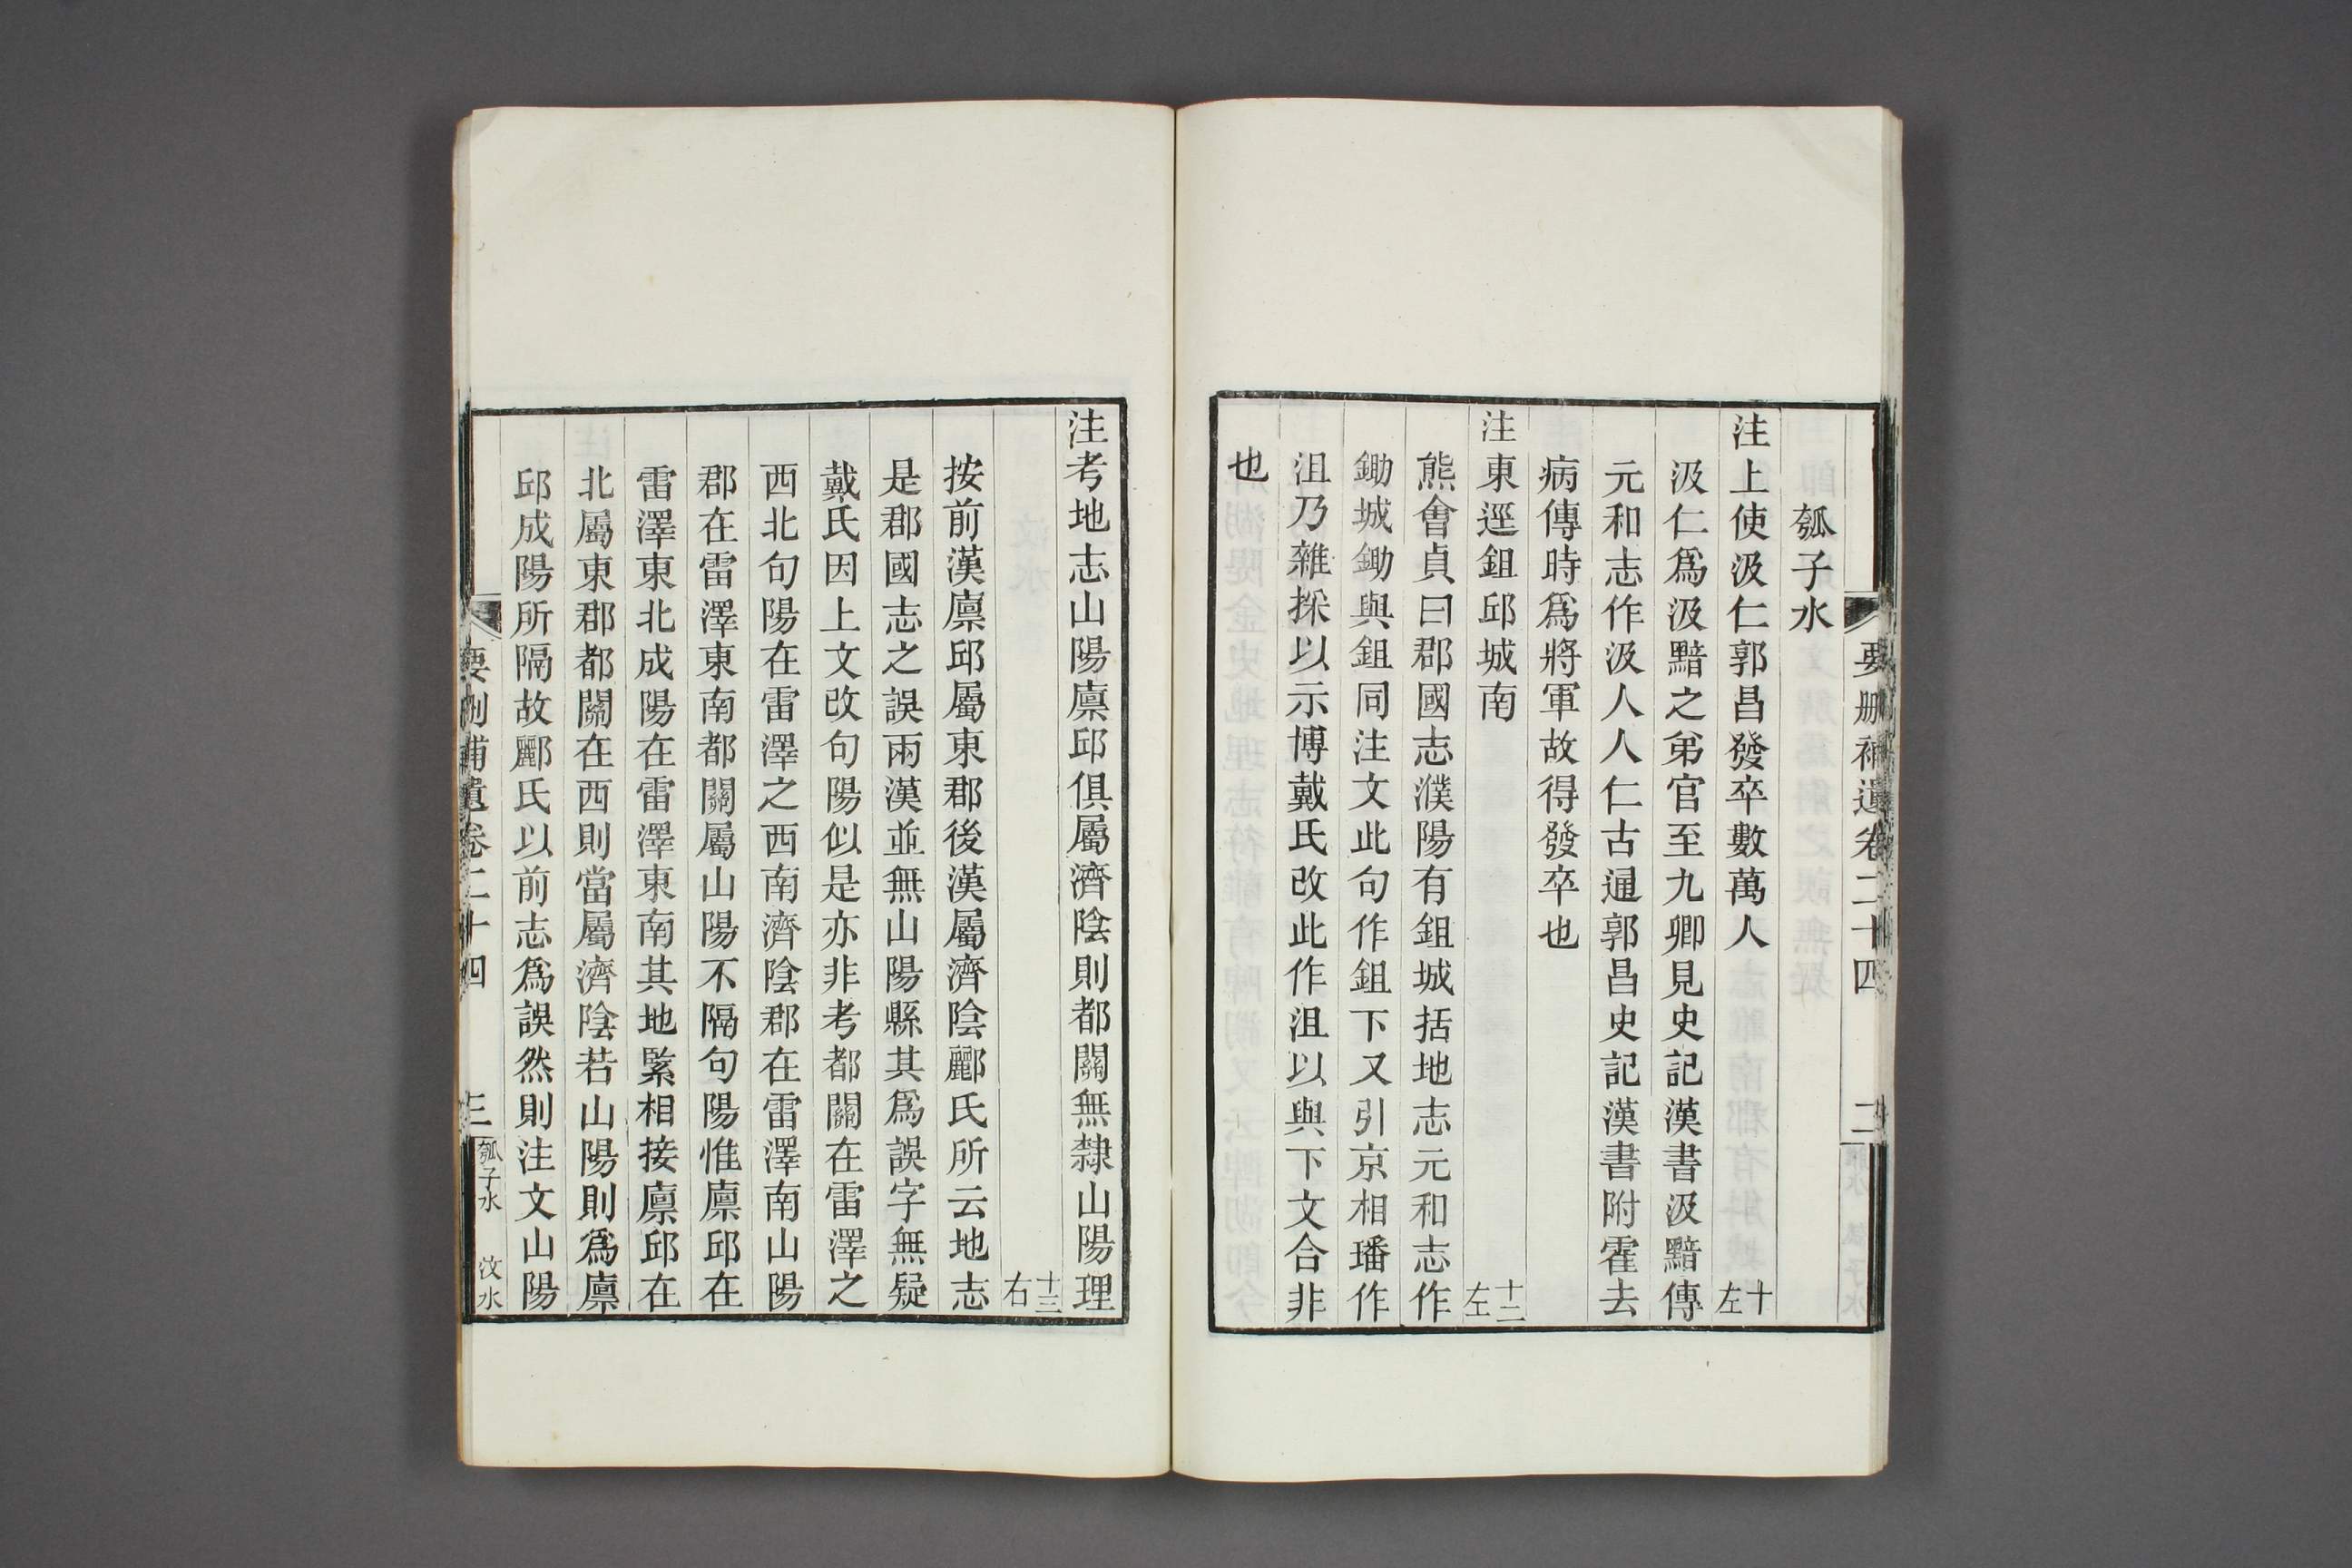 要刪補遺卷二十四 二
瓠子水
注上使汲仁郭昌發卒數萬人 十左
汲仁爲汲黯之弟官至九卿見史記漢書汲黯傳
元和志作汲人人仁古通郭昌史記漢書附霍去
病傳時爲將軍故得發卒也
注東逕鉏邱城南 十二左
熊會貞曰郡國志濮陽有鉏城括地志元和志作
鋤城鋤與鉏同注文此句作鉏下又引京相璠作
沮乃雜採以示博戴氏改此作沮以與下文合非
也
注考地志山陽廩邱俱屬濟陰則都關無隸山陽理
十三右
按前漢廩邱屬東郡後漢屬濟陰酈氏所云地志
是郡國志之誤兩漢並無山陽縣其爲誤字無疑
戴氏因上文改句陽似是亦非考都關在雷澤之
西北句陽在雷澤之西南濟陰郡在雷澤南山陽
郡在雷澤東南都關屬山陽不隔句陽惟廩邱在
雷澤東北成陽在雷澤東南其地緊相接廩邱在
北屬東郡都關在西則當屬濟陰若山陽則爲廩
邱成陽所隔故酈氏以前志爲誤然則注文山陽
要刪補遺卷二十四 三 瓠子水 汶水